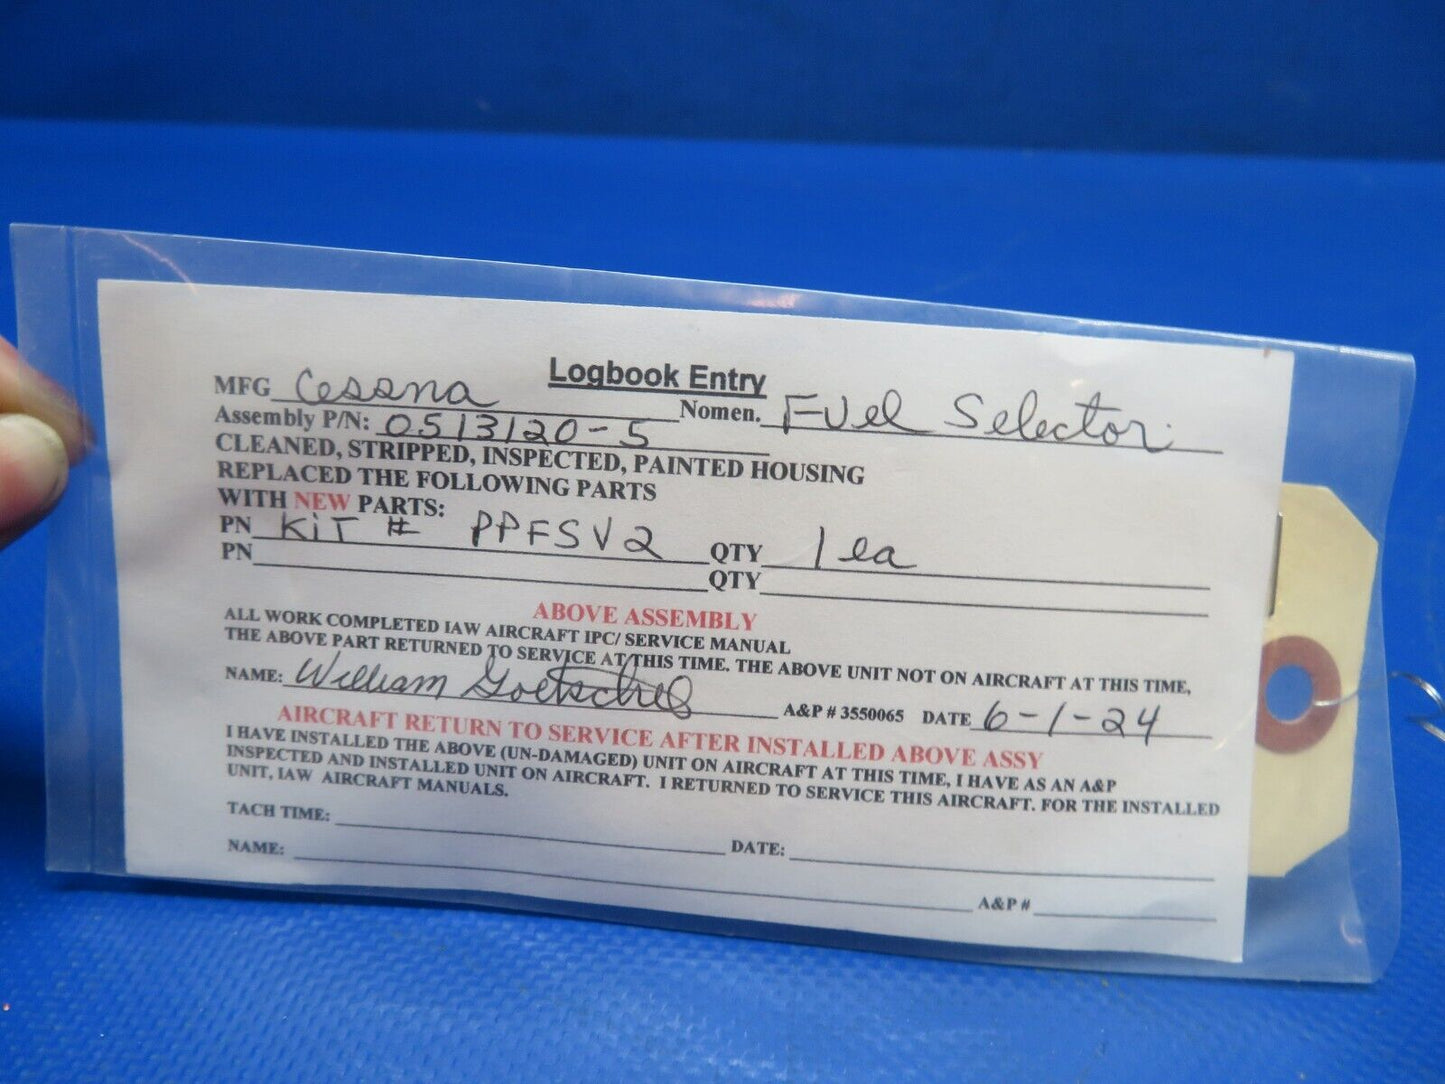 Logbook Entry
MFG Cessna Nomen. Fuel Selector
Assembly P/N: 0513120-5
CLEANED, STRIPPED, INSPECTED, PAINTED HOUSING
REPLACED THE FOLLOWING PARTS
WITH NEW PARTS:
PN KiT # PPFSV2 QTY 1 ea
PN QTY
ABOVE ASSEMBLY
ALL WORK COMPLETED IAW AIRCRAFT IPC/ SERVICE MANUAL
THE ABOVE PART RETURNED TO SERVICE AT THIS TIME. THE ABOVE UNIT NOT ON AIRCRAFT AT THIS TIME,
NAME: William Goetschel A&P # 3550065 DATE 6-1-24
AIRCRAFT RETURN TO SERVICE AFTER INSTALLED ABOVE ASSY
I HAVE INSTALLED THE ABOVE (UN-DAMAGED) UNIT ON AIRCRAFT AT THIS TIME, I HAVE AS AN A&P
INSPECTED AND INSTALLED UNIT ON AIRCRAFT. I RETURNED TO SERVICE THIS AIRCRAFT. FOR THE INSTALLED
UNIT, IAW AIRCRAFT MANUALS.
TACH TIME: DATE:
NAME: A&P #